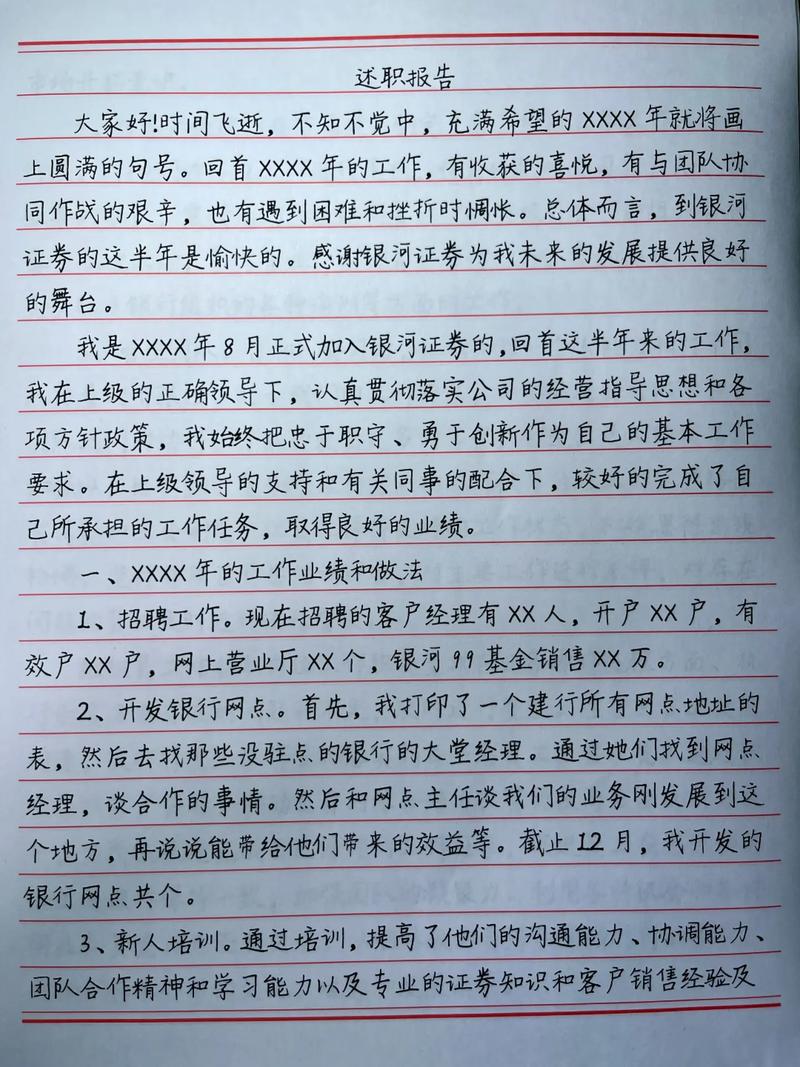 述职报告
大家好!时间飞逝，不知不觉中，充满希望的XXXX年就将画
上圆满的句号。回首XXXX年的工作，有收获的喜悦，有与团队协
同作战的艰辛，也有遇到困难和挫折时惆怅。总体而言，到银河
证券的这半年是愉快的。感谢银河证券为我未来的发展提供良好
的舞台。
我是XXXX年8月正式加入银河证券的,回首这半年来的工作，
我在上级的正确领导下，认真贯彻落实公司的经营指导思想和各
项方针政策，我始终把忠于职守、勇于创新作为自己的基本工作
要求。在上级领导的支持和有关同事的配合下，较好的完成了自
己所承担的工作任务，取得良好的业绩。
一、XXXX年的工作业绩和做法
1、招聘工作。现在招聘的客户经理有XX人，开户XX户，有
效户XX户，网上营业厅XX个，银河99基金销售XX万。
2、开发银行网点。首先，我打印了一个建行所有网点地址的
表，然后去找那些没驻点的银行的大堂经理。通过她们找到网点
经理，谈合作的事情。然后和网点主任谈我们的业务刚发展到这
个地方，再说说能带给他们带来的效益等。截止12月，我开发的
银行网点共个。
3、新人培训。通过培训，提高了他们的沟通能力、协调能力、
团队合作精神和学习能力以及专业的证券知识和客户销售经验及